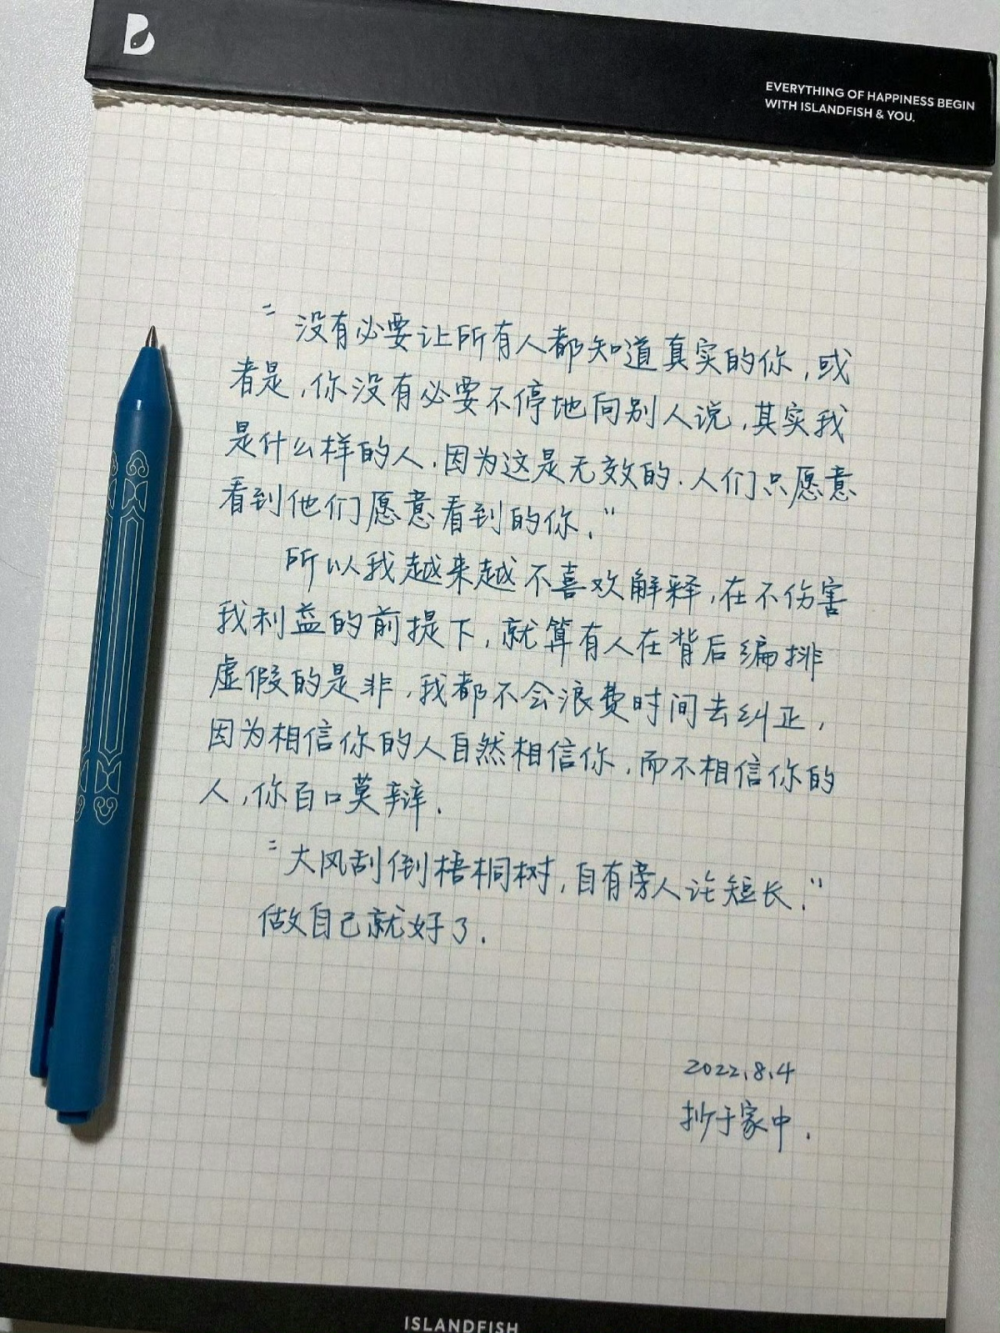 B
EVERYTHING OF HAPPINESS BEGIN
WITH ISLANDFISH & YOU.
"没有必要让所有人都知道真实的你,或
者是,你没有必要不停地向别人说,其实我
是什么样的人.因为这是无效的.人们只愿意
看到他们愿意看到的你."
所以我越来越不喜欢解释,在不伤害
我利益的前提下,就算有人在背后编排
虚假的是非,我都不会浪费时间去纠正,
因为相信你的人自然相信你,而不相信你的
人,你百口莫辩.
"大风刮倒梧桐树,自有旁人论短长."
做自己就好了.
2022.8.4
抄于家中.
ISLANDFISH